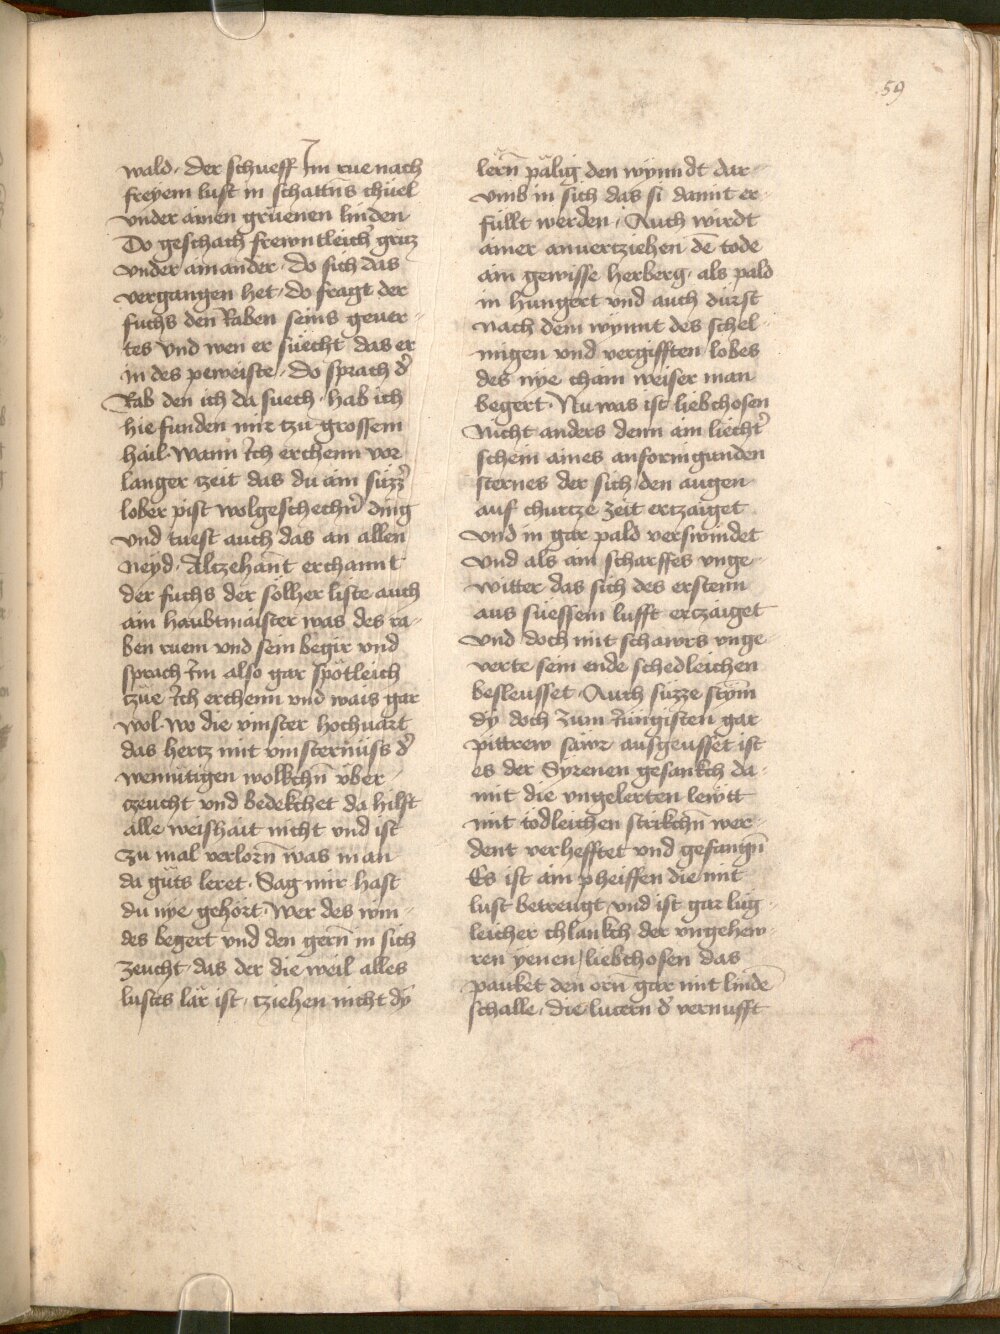 59
wald · der schueff Im rue nach
freyem lust in schattns chüel
vnder ainen grüenen linden
Do geschach frewntleich grüz
vnder ainander · do sich das
vergangen het · do fragt der
fuchs den Raben seins geuer-
tes vnd wen er suecht das er
in des peweiste · do sprach d̕
Rab den ich da suech · hab ich
hie funden mir tzu grossem
hail · wann Ich erchenn vor
langer zeit das du ain süzz̕
lober pist wolgeschechn̄ ding
vnd tuest auch das an allen
neyd · Altzehant erchannt
der fuchs der sölher liste auch
ain haubtmaister was des ra-
ben ruem vnd sein begir vnd
sprach Im also gar spötleich
tzue Ich erchenn vnd wais gar
wol · wo die vinster hochuart
das hertz mit vinsternüss d̕
wemütigen wolkchn̄ über-
tzeucht vnd bedekchet da hilft
alle weishait nicht vnd ist
zu mal verlorn̄ was man
da güts leret · Sag mir hast
du nye gehört · wer des win-
des begert vnd den gern̄ in sich
zeucht · das der die weil alles
lustes lär ist · tziehen nicht dy
lern̄ pälig den wynndt dar-
vmb in sich das si damit er-
füllt werden · Auch wirdt
ainer anvertziehen dē tode
ain gewisse herberg · als pald
in hungert vnd auch dürst
nach dem wynnt des schel-
migen vnd vergifften lobes
des nye chain weiser man
begert · Nu was ist liebchosen
Nicht anders denn ain liecht̕
schein aines anformgunden
sternes der sich den augen
auf churtze zeit ertzaiget
vnd in gar pald verswindet
vnd als ain scharffes vnge-
witter das sich des erstenn
aus suessem lufft ertzaiget
vnd doch mit schawrs vnge-
verte sein ende schedleichen
besleusset · Auch süzze stym
dy doch zum Iüngisten gar
pittrew säwr ausgeusset ist
es der Syrenen gesankch da-
mit die vngelerten lewtt
mit tödleichen strikchn̄ wer-
dent verhefftet vnd gefangn̄
Es ist ain pheiffen die mit
lust betreugt vnd ist gar lüg-
leicher chlankch der vngehew-
ren yenen / liebchosen das
pauket den orn̄ gar mit lindē
schalle · die lucern d̕ vernufft